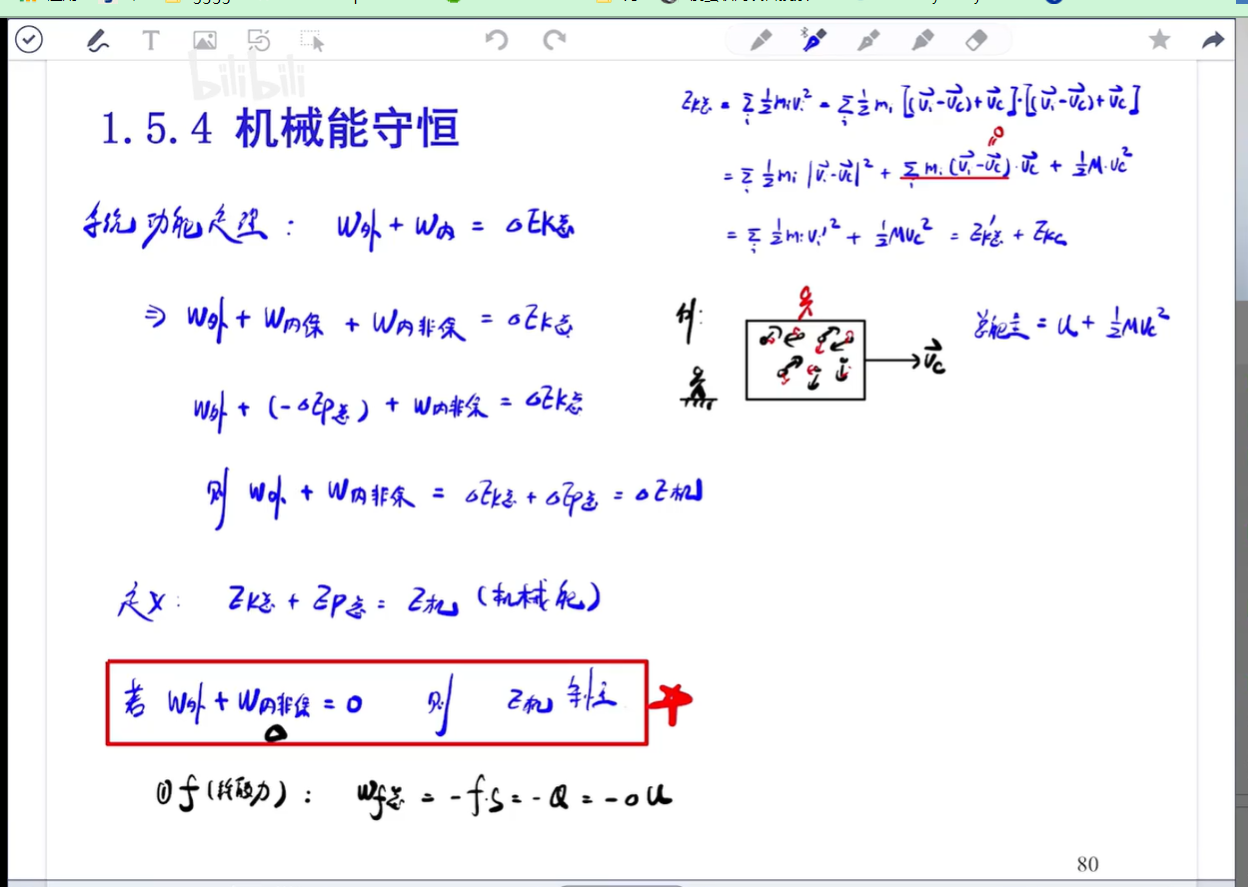 bilibili
1.5.4 机械能守恒
系统功能定理: W外 + W内 = ΔEk总
⇒ W外 + W内保 + W内非保 = ΔEk总
W外 + (-ΔEp总) + W内非保 = ΔEk总
则 W外 + W内非保 = ΔEk总 + ΔEp总 = ΔE机
定义: Ek总 + Ep总 = E机 (机械能)
若 W外 + W内非保 = 0 则 E机 守恒
① f(): Wf总 = -f·s = -Q = -ΔU
Ek总 = Σi ½mivi² = Σi ½mi [(v⃗i-v⃗c)+v⃗c]·[(v⃗i-v⃗c)+v⃗c]
= Σi ½mi |v⃗i-v⃗c|² + Σi mi(v⃗i-v⃗c)·v⃗c + ½M·vc²
0
= Σi ½mivi'² + ½Mvc² = Ek总' + Ekc
例:
v⃗c
总能量 = U + ½Mvc²
80